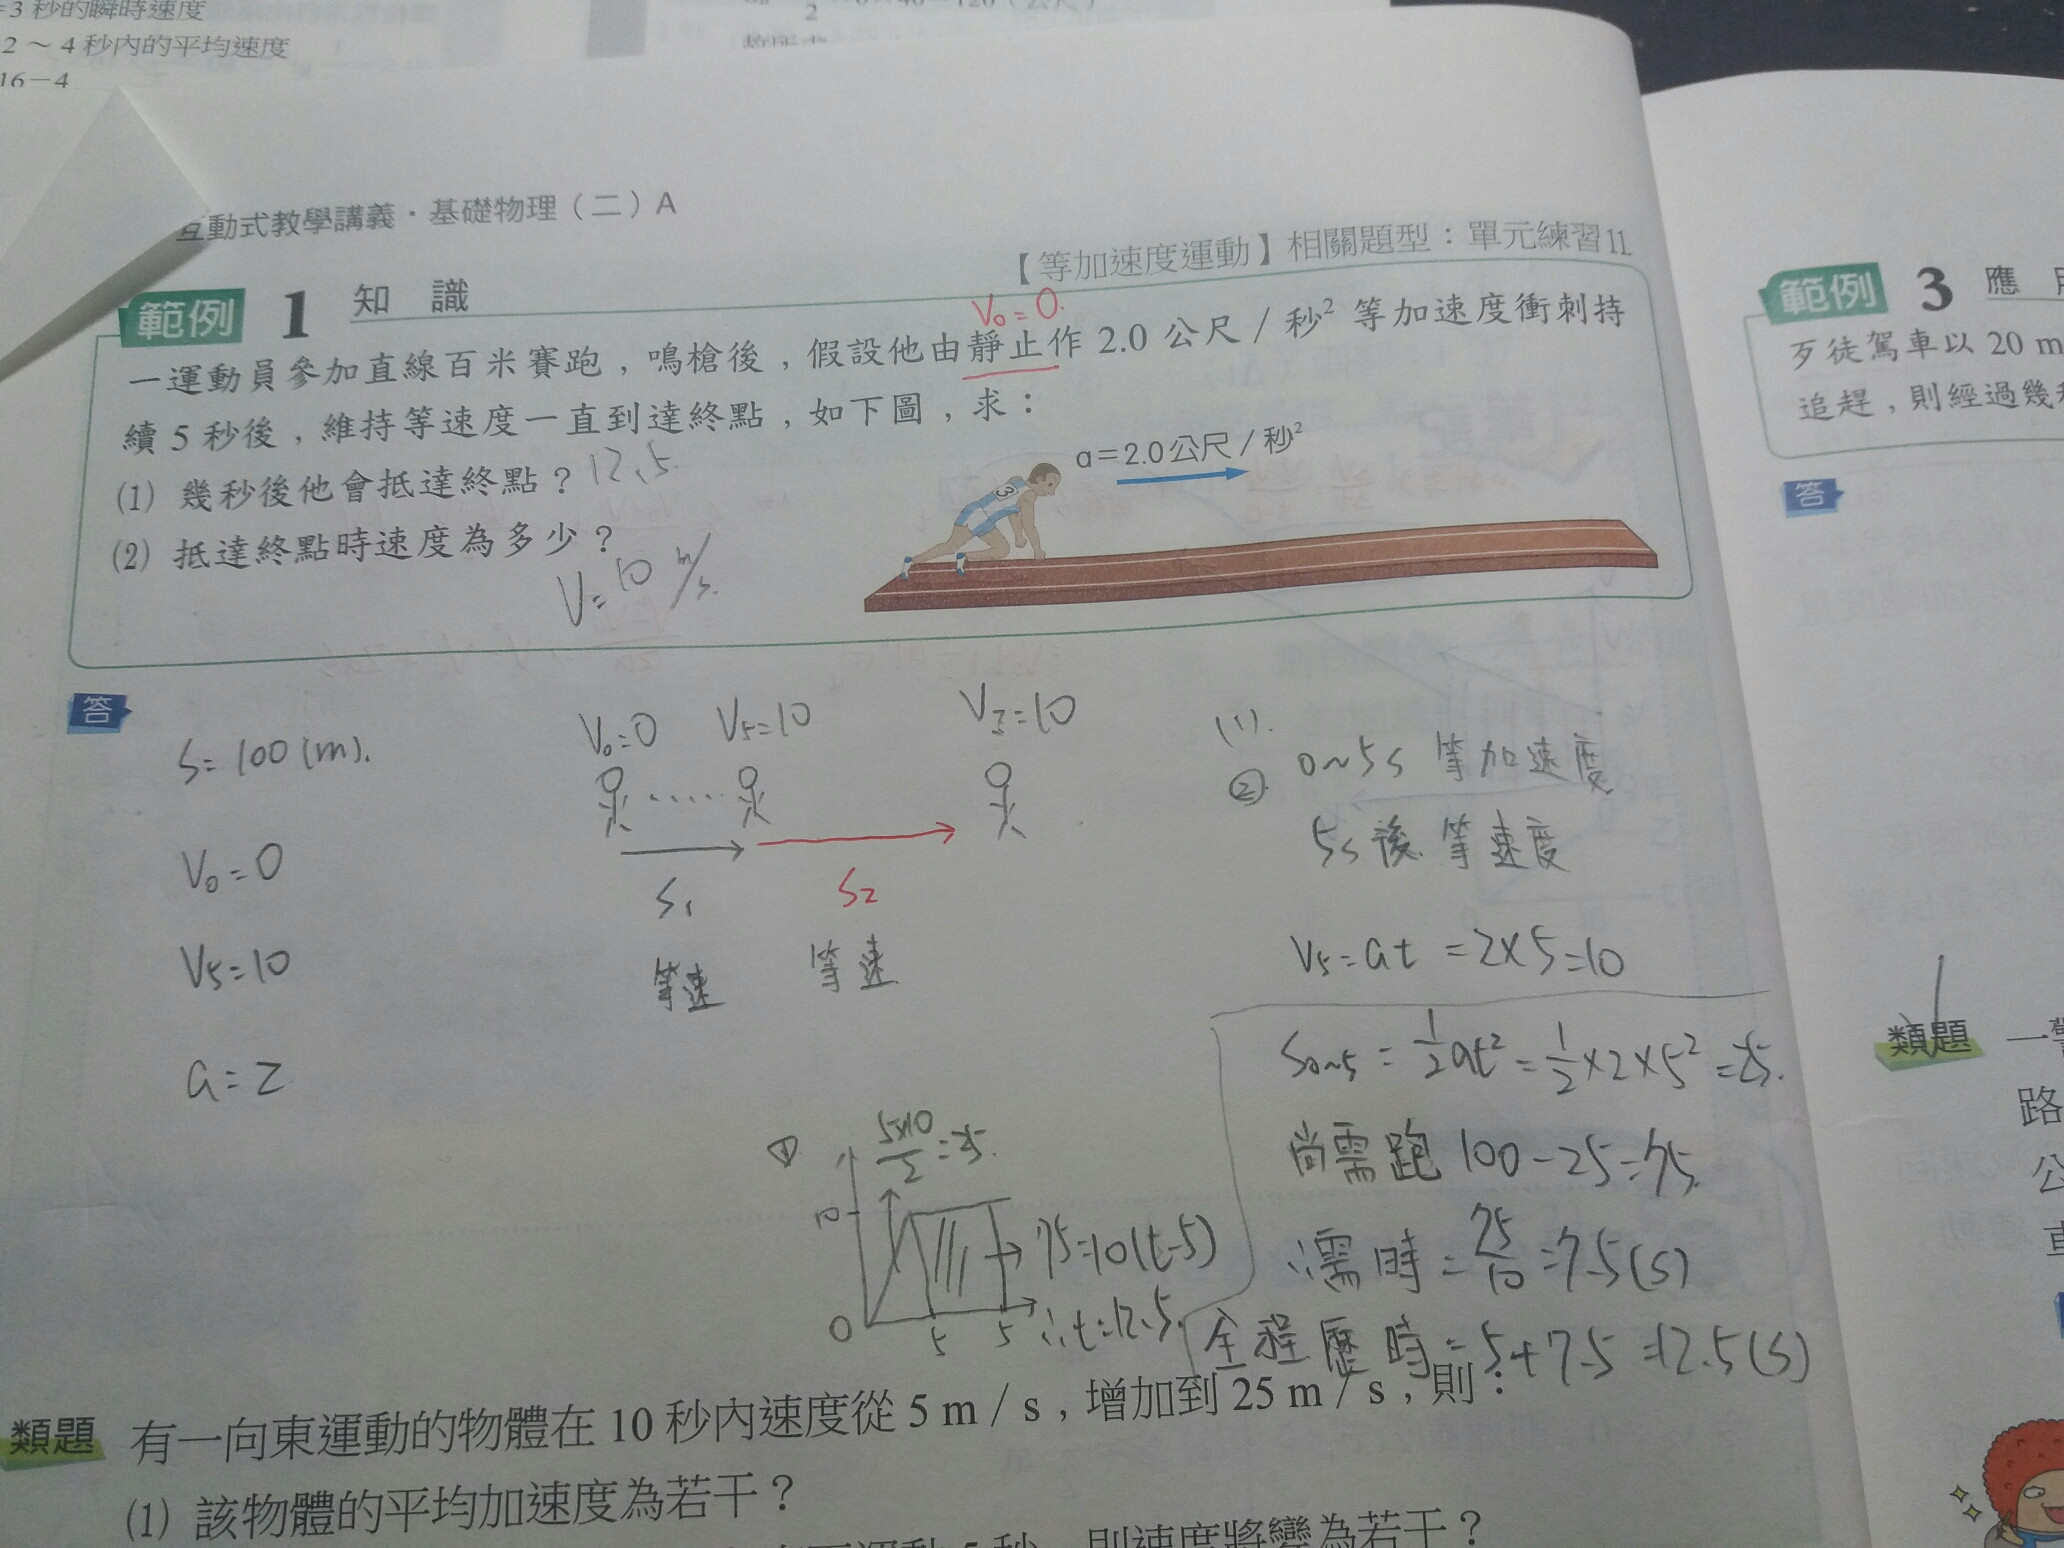 =3 秒的瞬時速度
2～4 秒內的平均速度
16－4
互動式教學講義・基礎物理（二）A
【等加速度運動】相關題型：單元練習11.
範例 1 知 識
V₀=0.
一運動員參加直線百米賽跑，鳴槍後，假設他由靜止作 2.0 公尺／秒² 等加速度衝刺持
續 5 秒後，維持等速度一直到達終點，如下圖，求：
(1) 幾秒後他會抵達終點？ 12.5.
(2) 抵達終點時速度為多少？
V=10 m/s.
a＝2.0公尺／秒²
3
答
S=100(m).
V₀=0
V₅=10
a=2
V₀=0 V₅=10 =10
S₁ S₂
等速 等速
(1).
② 0~5s 等加速度
5s後 等速度
V₅=at=2×5=10
S₀~₅=½at²=½×2×5²=25.
尚需跑 100-25=75.
∴需時=75/10=7.5(s)
全程歷時=5+7.5=12.5(s)
①
5×10/2=25.
10
75=10(t-5)
∴t=12.5.
0 5 5
類題 有一向東運動的物體在 10 秒內速度從 5 m／s，增加到 25 m／s，則：
(1) 該物體的平均加速度為若干？
運動 5 秒，則速度將變為若干？
範例 3 應
歹徒駕車以 20 m
追趕，則經過幾
答
類題 一
路
公